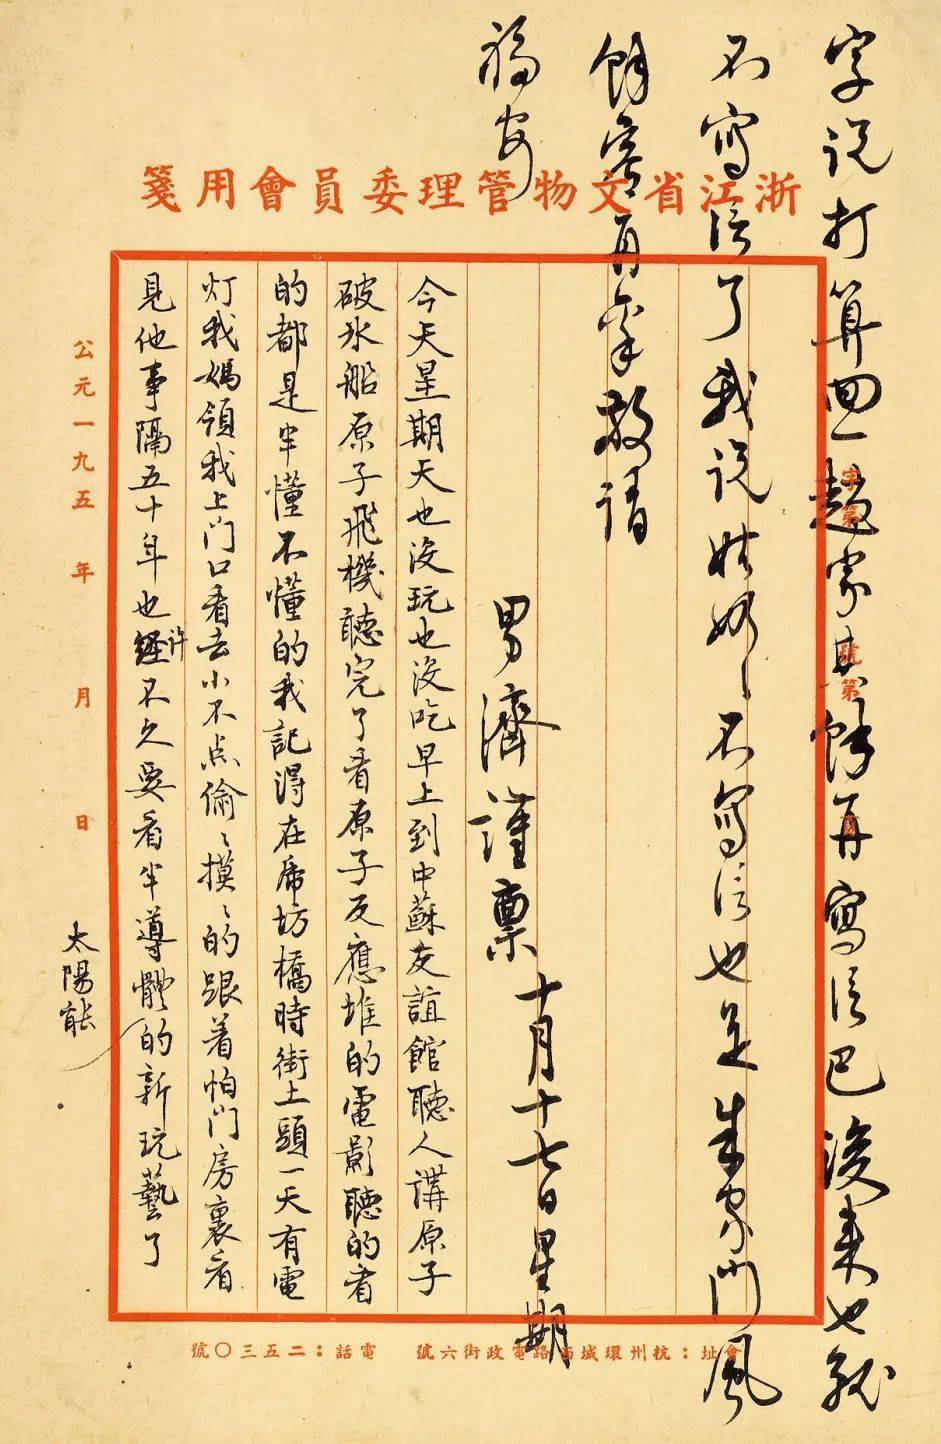 字说打算回一趟家其馀再寫信巴後来也就
不寫信了我说姑奶〻不寫信也是朱家门風
馀容再稟敬请
福安
浙江省文物管理委員會用箋
男濟謹稟
十月十七日星期
今天星期天也没玩也没吃早上到中蘇友誼館聽人講原子
破氷船原子飛機聽完了看原子反應堆的電影聽的看
的都是半懂不懂的我記得在虎坊橋時街上頭一天有電
灯我媽領我上门口看去小不点偷〻摸〻的跟着怕门房裏看
見他事隔五十年也許經不久要看半導體的新玩藝了
太陽能
公元一九五 年 月 日
字第 號第
會址：杭州環城西路電政街六號 電話：二五三〇號